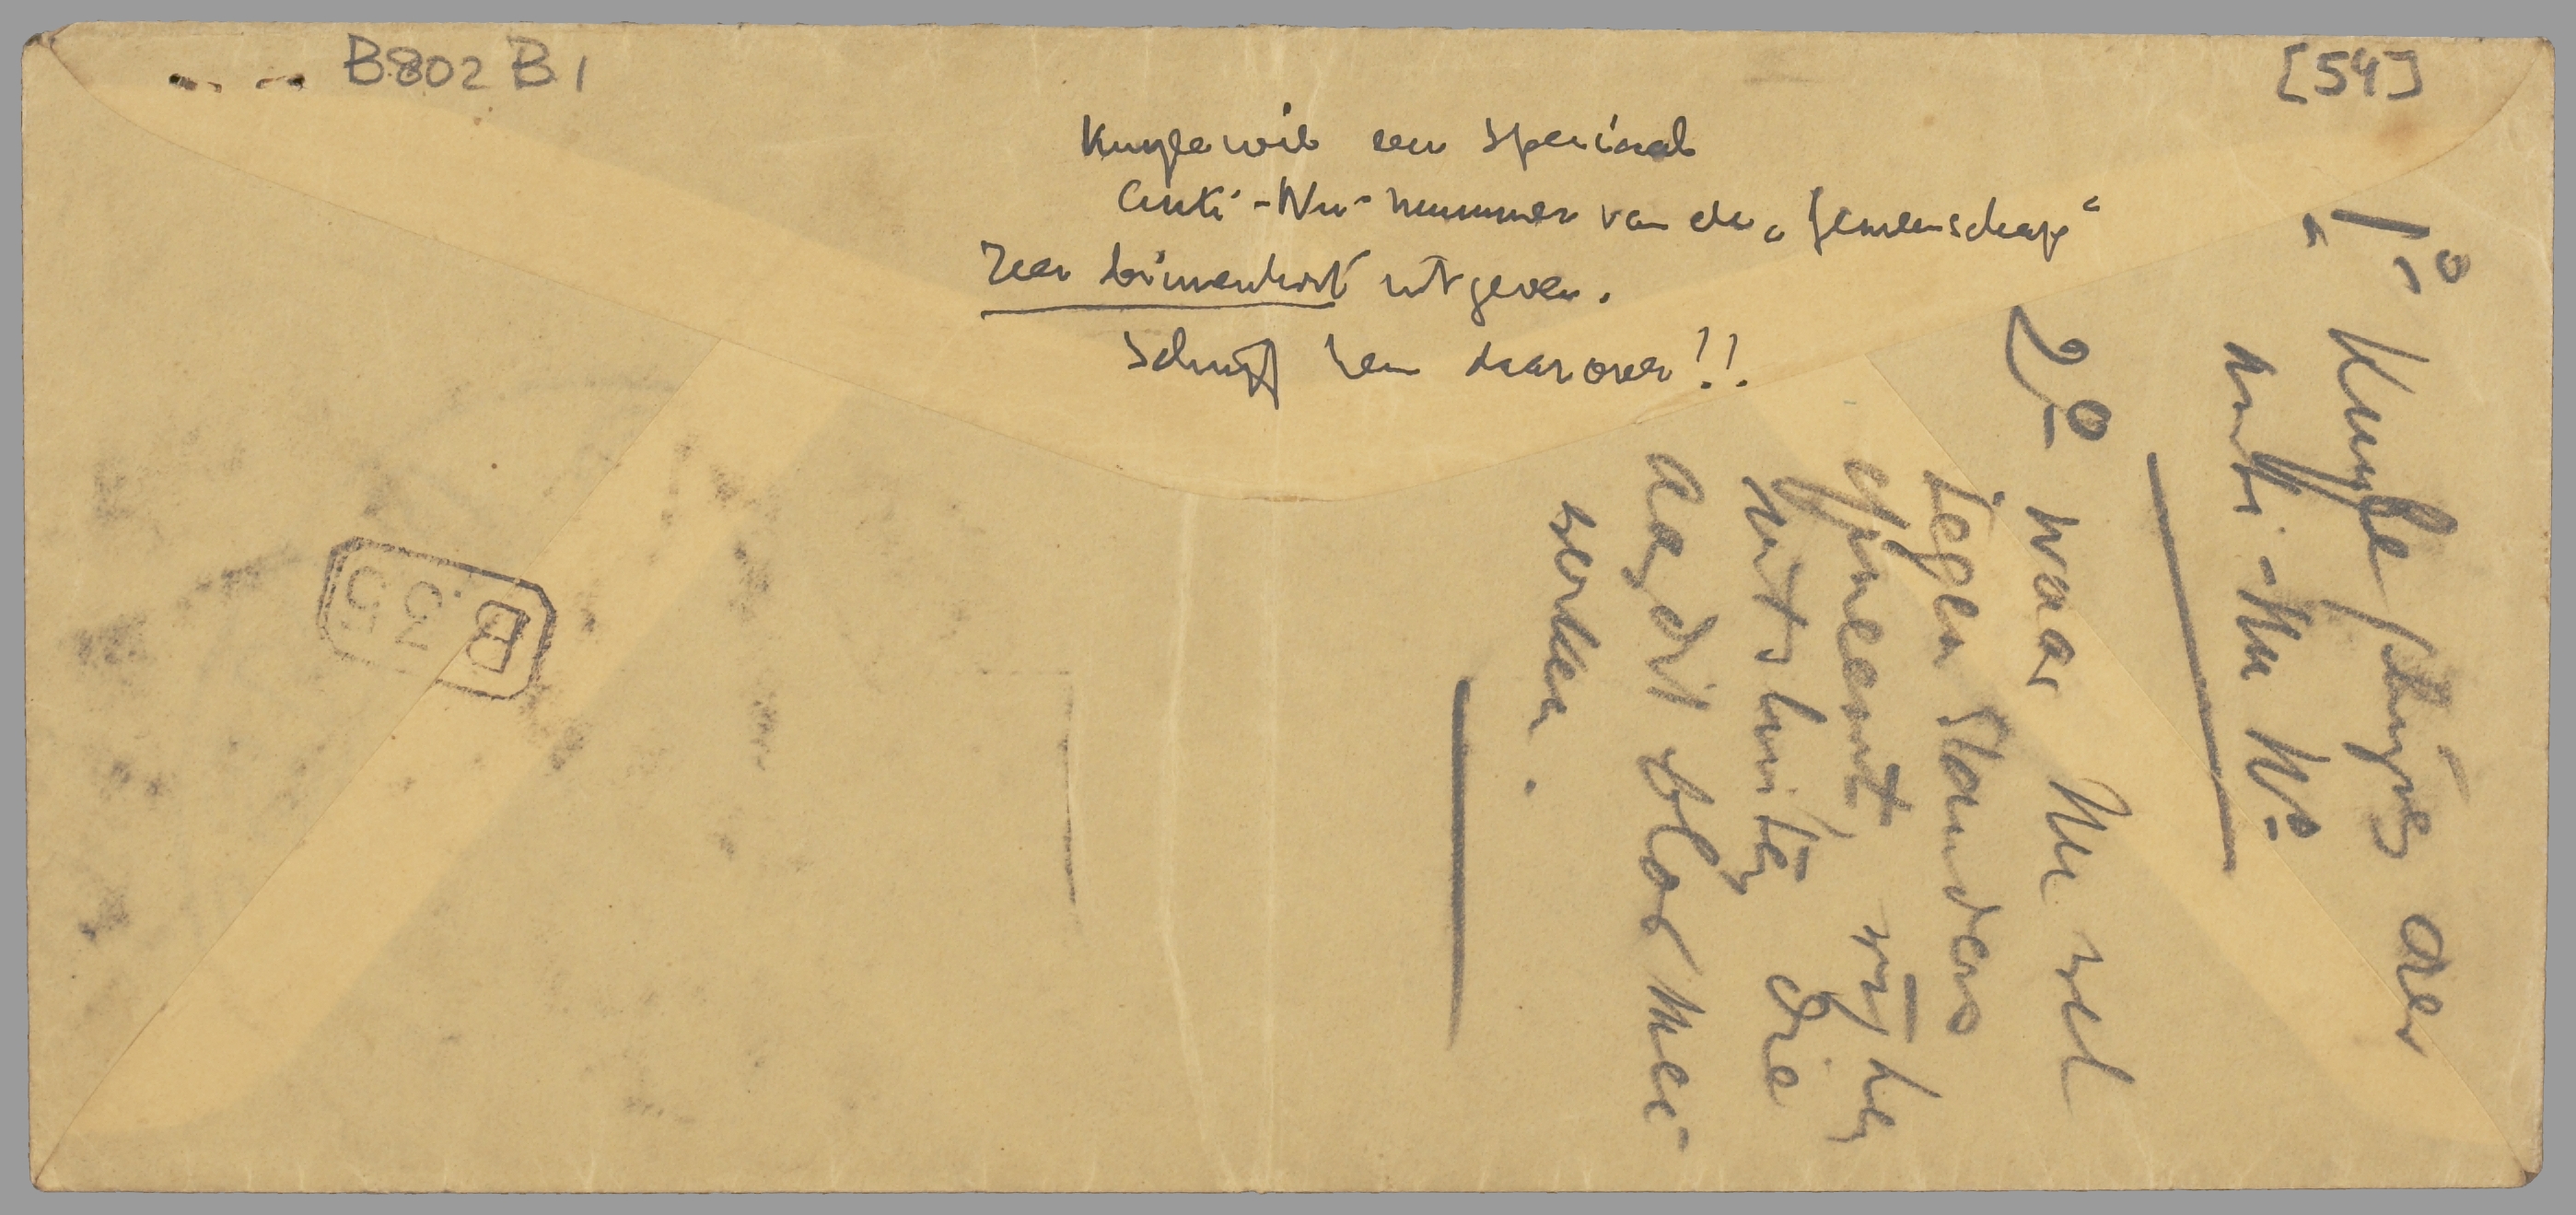 B802 B1
[54]
Kuyle wil een speciaal
Anti-Nu-nummer van de „Gemeenschap"
zeer binnenkort uitgeven.
Schrijf hem daarover!!
1º Kuyle schrijven over
anti-Nu Nº
2º waar Nu wel
tegenstanders
opneemt, mits hij
uitsluiten die
aan dit blad mee-
werken.
B.35